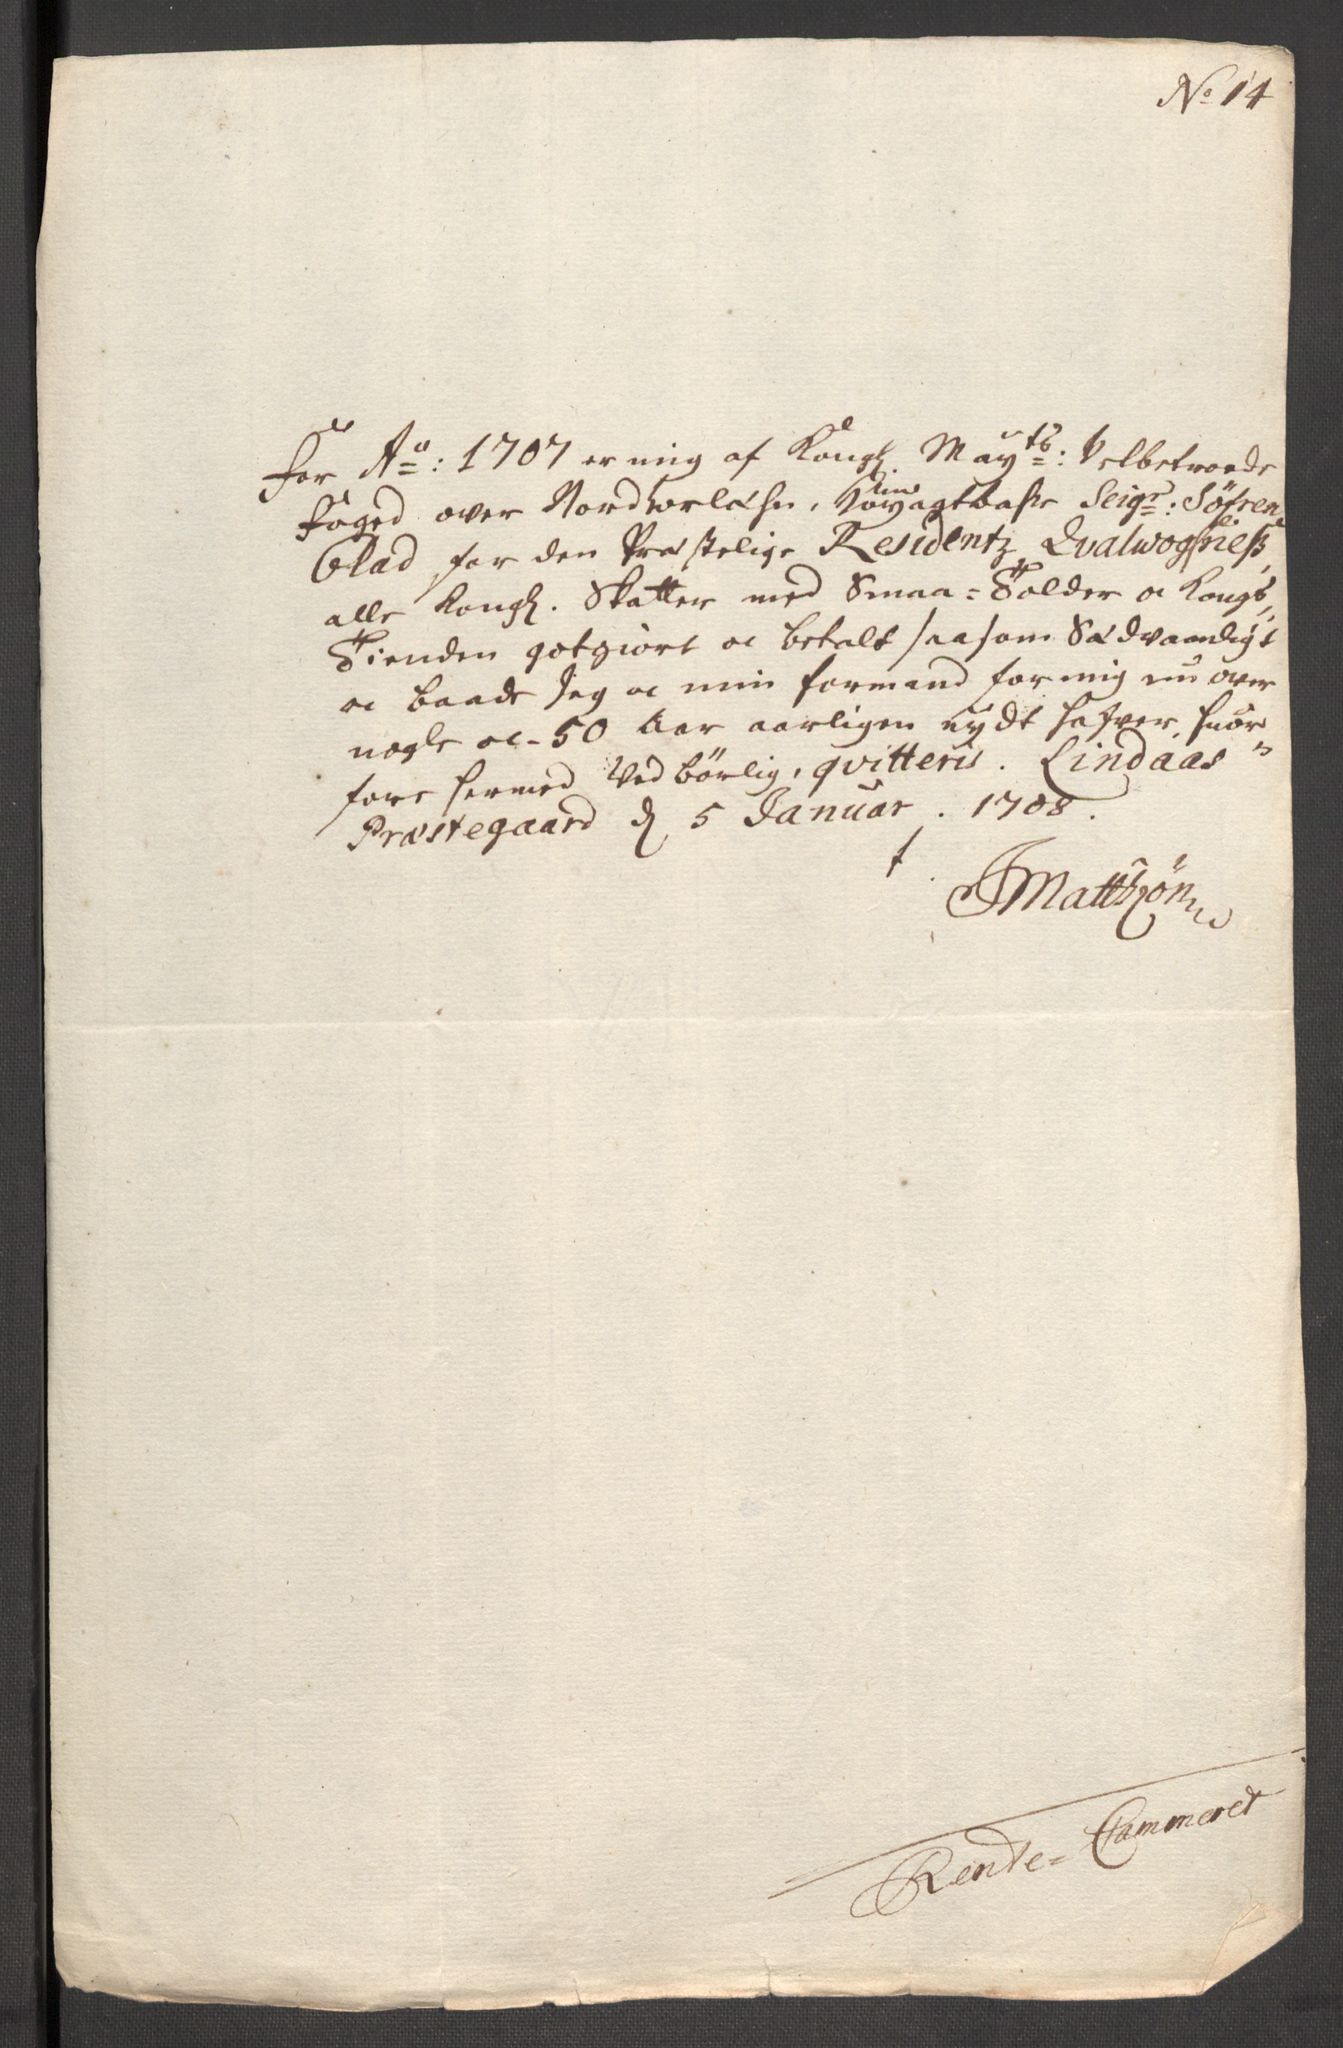 No 14
For Ao: 1707 er mig af Kongl. Mayts: Velbetroede
Foged over Nordhorlehn, Seigr: Söfren
Glad for den Præstelige Residentz Qvalwogneß,
alle Kongl. Skatter med Smaa=Tolder oc Kongs,,
Tienden gotgiort oc betalt saasom Sædvaanligt
oc baade Jeg oc min formand for mig nu over
nogle oc 50 Aar aarligen nydt hafver, huor
fore hermed Vedbörlig, qvitteris. Lindaas
Præstegaard d 5 Januar. 1708.
Rente=Cammeret